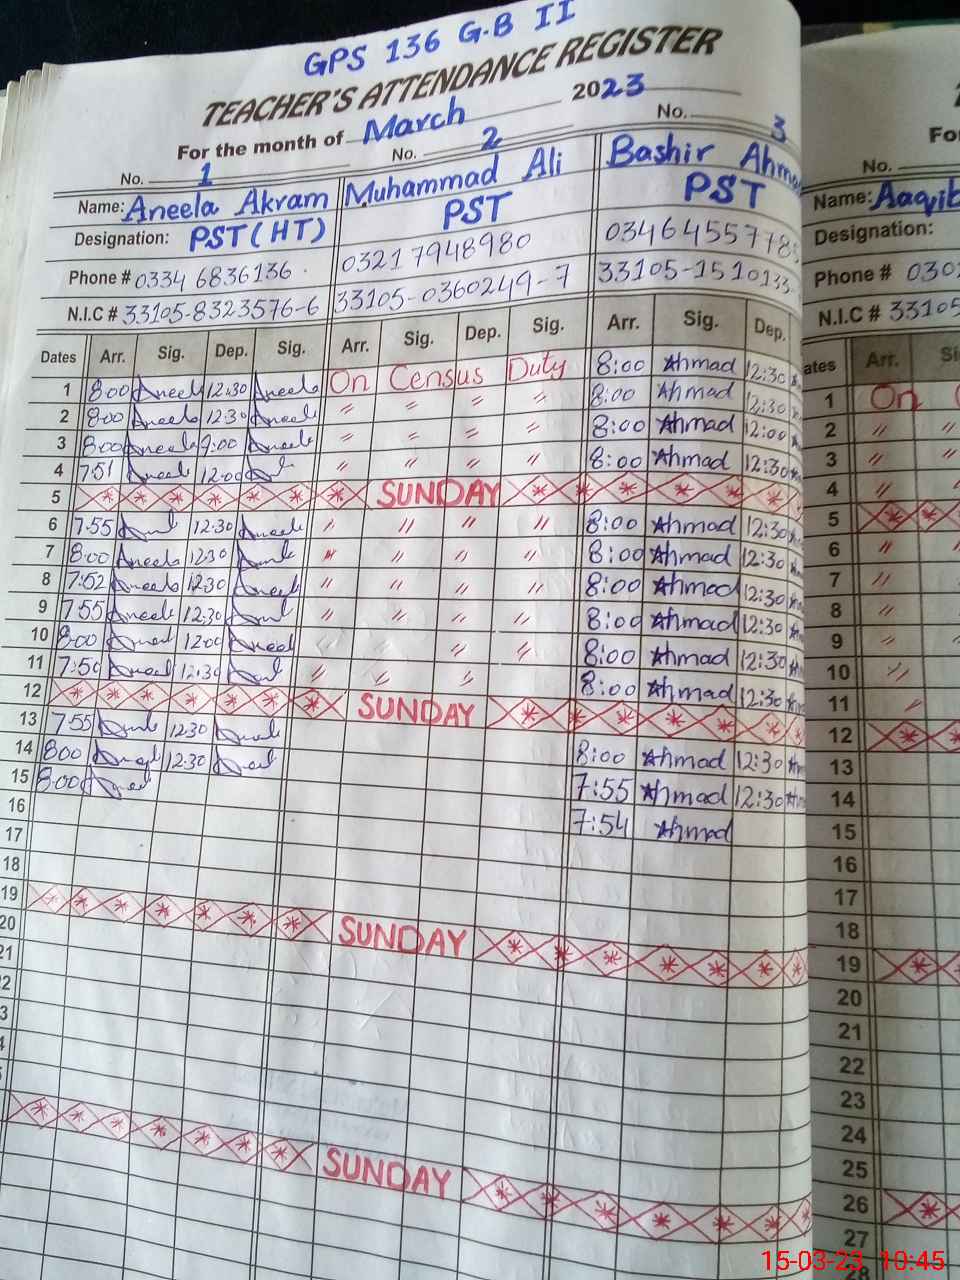 GPS 136 G.B II
TEACHER'S ATTENDANCE REGISTER
For the month of March 2023
No. 1 No. 2 No. 3
Name: Aneela Akram Muhammad Ali Bashir Ahma
Designation: PST (HT) PST PST
Phone # 0334 6836136 03217948980 0346455778
N.I.C # 33105-8323576-6 33105-0360249-7 33105-1510133-
Dates Arr. Sig. Dep. Sig. Arr. Sig. Dep. Sig. Arr. Sig. Dep.
1 8:00 Aneela 12:30 Aneela On Census Duty 8:00 Ahmad 12:30
2 8:00 Aneela 12:30 Aneela " " " " 8:00 Ahmad 12:30
3 8:00 Aneela 9:00 Aneela " " " " 8:00 Ahmad 12:00
4 7:51 Aneela 12:00 " " " " 8:00 Ahmad 12:30
5 SUNDAY
6 7:55 12:30 Aneela " " " " 8:00 Ahmad 12:30
7 8:00 Aneela 12:30 " " " " 8:00 Ahmad 12:30
8 7:52 Aneela 12:30 Aneela " " " " 8:00 Ahmad 12:30
9 7:55 Aneela 12:30 " " " " 8:00 Ahmad 12:30
10 8:00 12:00 Aneela " " 8:00 Ahmad 12:30
11 7:50 Aneela 12:30 " " " 8:00 Ahmad 12:30
12 SUNDAY
13 7:55 12:30 8:00 Ahmad 12:30
14 8:00 12:30 7:55 Ahmad 12:30
15 8:00 7:54 Ahmad
16
17
18
19 SUNDAY
20
21
SUNDAY
Fo
No.
Name: Aaqib
Designation:
Phone # 030
N.I.C # 33105
ates Arr.
1 On
2 " "
3 " "
4 "
5
6 " "
7 "
8 "
9 "
10 "
11 "
12
13
14
15
16
17
18
19
20
21
22
23
24
25
26
27
28
15-03-23 10:45